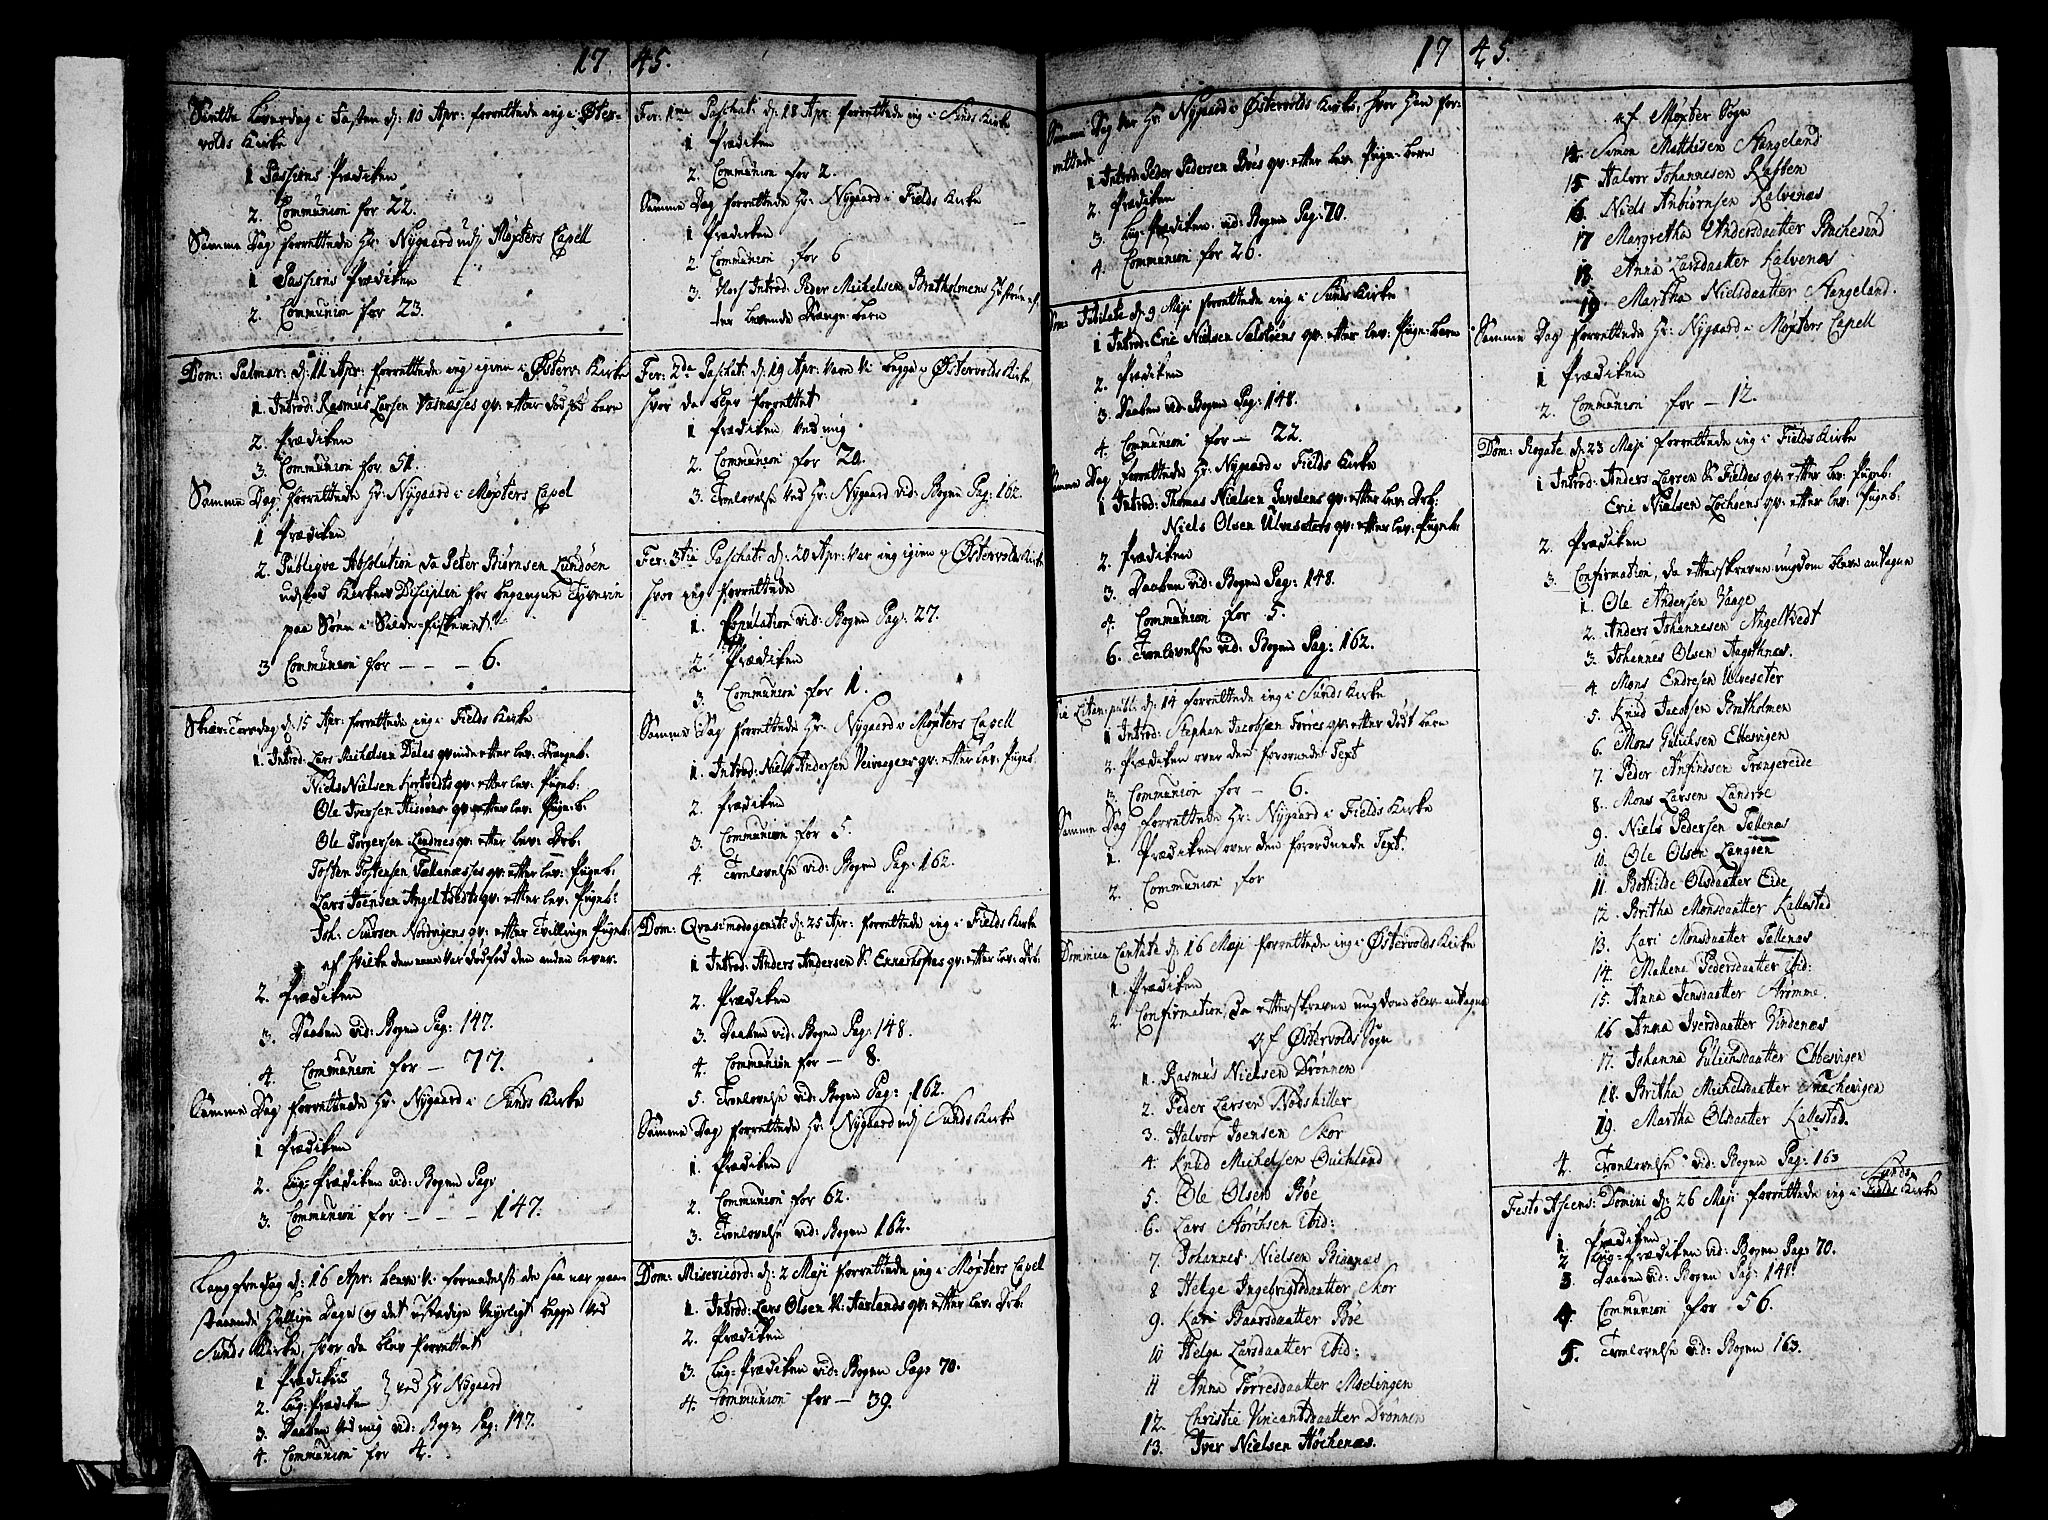 17 45.
Siette Løverdag i Fasten d: 10 Apr: forrettede ieg i Øster-
volds Kirke
1 Passions Prædiken
2. Communion for 22.
Samme Dag forrettede Hr: Nygaard udj Møxters Capell
1 Passions Prædiken
2. Communion for 23.
Dom: Palmar: d: 11 Apr: forrettede ieg igien i Østerv: Kirke
1. Introd: Rasmus Larsen Vasnæsses qv: efter dødfød barn
2. Prædiken
3. Communion for 51.
Samme Dag forrettede Hr: Nygaard i Møxters Capel
1 Prædiken
2. Publiqve Absolution da Peter Biørnsen Lundøen
udstod Kirkens Disciplin for begangne Tyverie
paa Søen i Silde-fiskeriet.
3 Communion for - - - 6.
Skiær-Torsdag d: 15 Apr: forrettede ieg i Fields Kirke
1. Introd: Lars Michelsen Dales qvinde efter lev: Drængeb:
Niels Nielsen Hortvedts qv: efter lev: Pigeb:
Ole Iversen qv: efter lev: Pigeb:
Ole Torgersen Lundnes qv: efter lev: Drb:
Tosten Tostensen Tællenæsses qv: efter lev: Pigeb:
Lars Joensen Angeltvedts qv: efter lev: Pigeb:
Joh: Siursen Nordvigens qv: efter Tvillinge Pigeb:
af hvilke den eene var dødfød den anden lever.
2. Prædiken
3. Daaben vid: Bogen Pag: 147.
4. Communion for - 77.
Samme Dag forrettede Hr: Nygaard i Sunds Kirke
1 Prædiken
2. Liig-Prædiken vid: Bogen Pag:
3. Communion for - - - 147.
Langfredag d: 16 Apr: bleve Vi formedelst de saa nær paa
staaende Hellige Dage og det ustadige Veyrligt begge ved
Sunds Kirke, hvor da blev forrettet
1 Prædiken
2. Liig-Prædiken } ved Hr Nygaard
3. Daaben ved mig vid: Bogen Pag: 147.
4. Communion for 4.
Fer: 1ma Paschat: d: 18 Apr: forrettede ieg i Sunds Kirke
1 Prædiken
2. Communion for 2.
Samme Dag forrettede Hr: Nygaard i Fields Kirke
1 Prædiken
2. Communion for 6
3. Noch Introd: Peder Michelsen Bratholmens Hustrue ef-
ter levende Drænge-barn
Fer: 2da Paschat: d: 19 Apr: vare Vi begge i Østervolds Kirke
hvor da blev forrettet
1 Prædiken ved mig
2. Communion for 20.
3. Troelovelse ved Hr: Nygaard vid: Bogen Pag: 162.
Fer: 3tia Paschat: d: 20 Apr: var ieg igien i Østervolds Kirke
hvor ieg forrettede
1. Copulation vid: Bogen Pag: 27.
2. Prædiken
3. Communion for 1.
Samme Dag forrettede Hr: Nygaard i Møxters Capell
1. Introd: Niels Andersen Veivaagens qv: efter lev: Pigeb:
2. Prædiken
3. Communion for 5.
4. Troelovelse vid: Bogen Pag: 162.
Dom: Qvasimodogenit: d: 25 Apr: forrettede ieg i Fields Kirke
1 Introd: Anders Andersen S: Ennershoftes qv: efter lev: Drb:
2. Prædiken
3. Daaben vid: Bogen Pag: 148.
4. Communion for - 8.
5. Troelovelse vid: Bogen Pag: 162.
Samme Dag forrettede Hr: Nygaard udj Sunds Kirke
1. Prædiken
2. Communion for 62.
3. Troelovelse vid: Bogen 162.
Dom: Misericord: d: 2 Maji forrettede ieg i Møxters Capell
1. Introd: Lars Olsen V: Harlands qv: efter lev: Drb:
2. Prædiken
3. Liig-Prædiken vid: Bogen Pag: 70.
4. Communion for - 39.
17 45.
Samme Dag var Hr: Nygaard i Østervolds Kirke, hvor Han for-
rettede
1 Introd: Peder Pedersen Bøes qv: efter lev: Pige-barn
2. Prædiken
3. Liig-Prædiken vid: Bogen Pag: 70.
4. Communion for 26.
Dom: Jubilate d: 9 Maji forrettede ieg i Sunds Kirke
1 Introd: Eric Nielsen qv: efter lev: Pige-barn
2. Prædiken
3. Daaben vid: Bogen Pag: 148.
4. Communion for - 22.
Samme Dag forrettede Hr: Nygaard i Fields Kirke
1 Introd: Thomas Nielsen qv: efter lev: Drb:
Niels Olsen Ulvesæters qv: efter lev: Pigeb:
2. Prædiken
3. Daaben vid: Bogen Pag: 148.
4. Communion for 5.
6. Troelovelse vid: Bogen Pag: 162.
Die Litan: publ: d: 14 forrettede ieg i Sunds Kirke
1 Introd: Stephan Jacobsen Torres qv: efter dødt barn
2. Prædiken over den forordnede Text
3. Communion for - 6.
Samme Dag forrettede Hr: Nygaard i Fields Kirke
1. Prædiken over den forordnede Text.
2. Communion for
Dominica Cantate d: 16 Maji forrettede ieg i Østervolds Kirke
1. Prædiken
2. Confirmation, da efterskrevne ungdom blev antagne
af Østervolds Sogn
1. Rasmus Nielsen Drønnen
2. Peder Larsen Nødskiller
3. Halvor Joensen Skor
4. Knud Michelsen Øuchland
5. Ole Olsen Bøe
6. Lars Størchsen Ibid:
7. Johannes Nielsen Birknæs
8 Helge Ingebrigtsdaatter Skor
9. Kari Baarsdaatter Bøe
10 Helga Larsdaatter Ibid:
11 Anna Torresdaatter Møelingen
12. Christie Vincantsdaatter Drønnen
13. Iver Nielsen Høchenæs.
af Møxter Sogn
14. Simon Matthisen Stangeland
15. Halvor Johannesen Raften
16. Niels Anbiørnsen Kalvenæs
17 Margretha Andersdaatter Bachesund
18. Anna Larsdaatter Kalvenæs
19. Martha Nielsdaatter Stangeland.
Samme Dag forrettede Hr: Nygaard i Møxters Capell
1 Prædiken
2. Communion for - 12.
Dom: Rogate d: 23 Maji forrettede ieg i Fields Kirke
1 Introd: Anders Lagren S: Fieldes qv: efter lev: Pigeb:
Eric Nielsen Lochøens qv: efter lev: Pigeb:
2. Prædiken
3. Confirmation, da efterskrevne ungdom bleve antagne
1. Ole Andersen Vaage
2. Anders Johannesen Angeltvedt
3. Johannes Olsen Aagothnæs.
4. Mons Endresen Ulvesæter
5. Knud Jacobsen Bratholmen
6. Mons Gulichsen Ebbesvigen
7. Peder Anfindsen Trængereide
8. Mons Larsen Landroe
9. Niels Pedersen Tællenæs
10. Ole Olsen Langøen
11. Bothilde Olsdaatter Eide
12. Britha Monsdaatter Kallestad
13. Kari Monsdaatter Tællenæs
14. Mallena Pedersdaatter Ibid:
15. Anna Jensdaatter Strømme.
16 Anna Iversdaatter Vindenæs
17. Johanna Gulichsdaatter Ebbesvigen
18. Britha Michelsdaatter Snæchevigen
19. Martha Olsdaatter Kallestad.
4. Troelovelse vid: Bogen Pag: 163
Festo Ascens: Domini d: 26 Maji forrettede ieg i Sunds Kirke
1. Prædiken
2 Liig-Prædiken vid: Bogen Pag: 70.
3 Daaben vid: Bogen Pag: 148.
4 Communion for 56.
5. Troelovelse vid: Bogen 163.